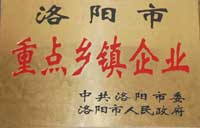 洛阳市
重点乡镇企业
中共洛阳市委
洛阳市人民政府